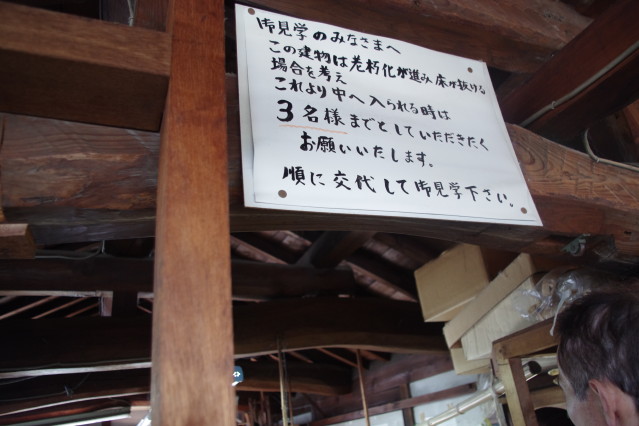 御見学のみなさまへ
この建物は老朽化が進み床が抜ける
場合を考え
これより中へ入られる時は
3名様までとしていただきたく
お願いいたします。
順に交代して御見学下さい。